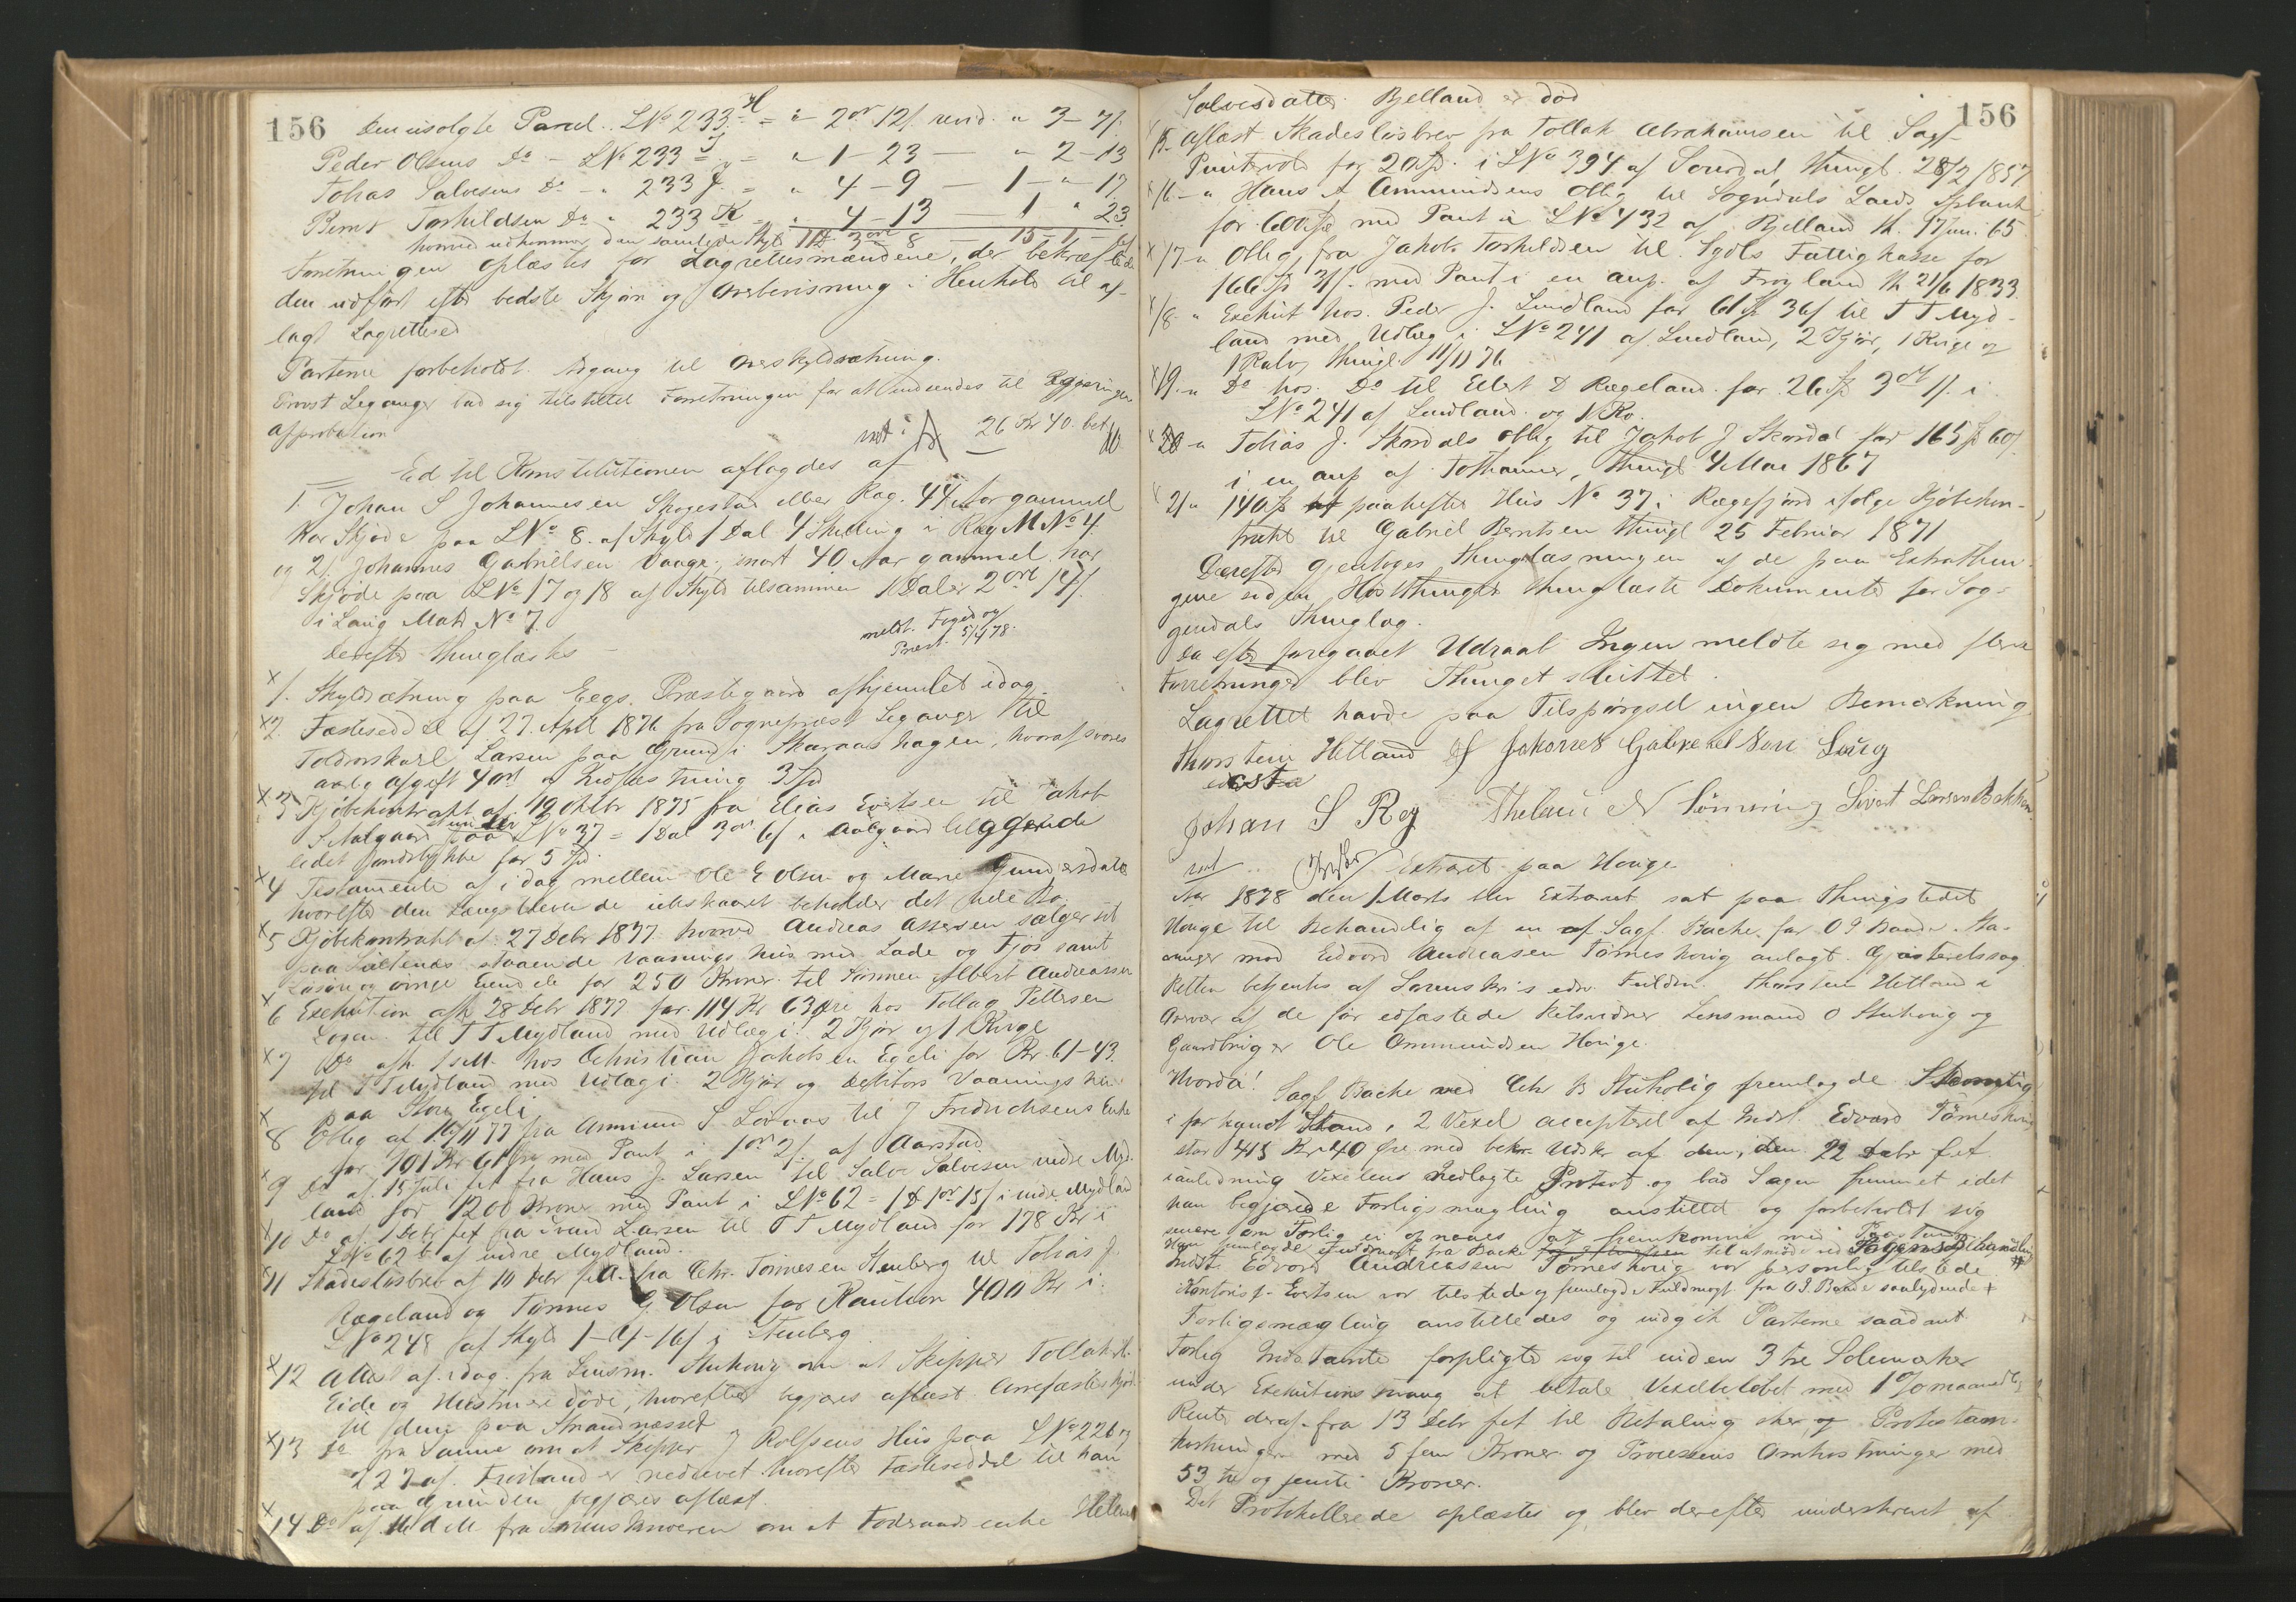 156
Den usolgte Parcel. LNo 233 H = " 2 ort 12 s. revid. " 3 - 7 s.
Peder Olsens Do - LNo 233 I = " 1 - 23 — " 2 - 13
Tobias Salvesens Do - " 233 J. = " 4 - 9 — 1 - " - 17
Bernt Torkildsen Do " 233 K = " 4 - 13 — 1 " 23
hvorved udkommer den samlede Skyld 11 D 3 ort 8 — 15 - 1 -
Forretningen oplæstes for Lagrettesmændene, der bekræftede
den udført efter bedste Skjøn og Overbevisning i Henhold til af-
lagt Lagretteed
Parterne forbeholdt Adgang til Overskyldsætning.
Provst Leganger bad sig tilstillet Forretningen for at indsendes til Regjeringens
Approbation
26 Kr 40. bet
Ed til Konstitutionen aflagdes af
1. Johan S Johannesen Skogestad ellerRæg. 44 Aar gammel
har Skjøde paa LNo 8. af Skyld 1 Dal 4 Skilling i Ræg M No 4.
og 2/. Johannes Gabrielsen Vaage, snart 40 Aar gammel, har
Skjøde paa LNo 17 og 18 af Skyld tilsammen 1 Daler 2 ort 17 s.
i Laug Mat No 7.
meldt. Foged og
Præst. 5/4 78.
Derefter thinglæstes —
1. Skyldsætning paa Eegs. Præstegaard afhjemlet idag.
2. Fæsteseddel af 27. April 1876 fra Sogneprest Leganger til
Toldrorskarl Larsen paa Grund i Skaraas hagen, hvoraf svares
aarlig afgift 4 ort og Indfæstning 3 Spd
3 Kjøbekontrakt af 19 Oktbr 1875 fra Elias Evertsen til Jakob
S Aalgaard paa LNo 37 = 1 Dal 3 ort 6 s i Aalgaard liggende
lidet Jordstykke for 5 Spd.
4 Testamente af idag mellem Ole E Olsen og Marie Gundersdatter
hvorefter den Længstlevende uskiftet beholder det hele Bo.
5 Kjøbekontrakt af 27 Debr 1877 hvorved Andreas Assersen sælger sit
paa Sletenæs staaende Vaanings hus med Lade og Fjøs samt
Løsøre og øvrige Eiendele for 250 Kroner til Sønnen Albert Andreassen
6 Exekution afh. 28 Debr 1877 for 114 Kr 63 Øre hos Tollag Pettersen
Logen. til T T Mydland med Udlæg i 2 Kjør og 1 Kvige
7 Do afh. 1 s M. hos Christian Jakobsen Egeli for Kr. 61-43.
til T T Mydland med Udlæg i 2 Kjør og Debitors Vaanings hus
paa Store Egeli
8 Oblig af 16/11 77 fra Ammund S. Løvaas til J Fredrichsens Enke
for 701 Kr 61 Øre med Pant i 1 ort 2 s. af Aarstad
9 Do af 15 Juli f A fra Hans J. Larsen til Salve Salvesen indre Myd-
land for 1200 Kroner med Pant i LNo 62 = 1 D 1 ort 15 s i indre Mydland
10 Do af 1 Debr f A fra Svend Larsen til T T Mydland for 178 Kr i
LNo 62 b af indre Mydland.
11 Skadesløsbrev af 10 Debr f. A. fra Chr. Tønnesen Stenberg til Tobias J.
Rægeland og Tønnes G. Olsen for Kaution 400 Kr i
LNo 248 af Skyld 1 - " - 16 s i Stenberg
12 Attest af idag. fra Lensm. Stuhoug om at Skipper Tollak
Eide og Hustru er døde, hvorefter begjæres aflæst Annefæsteskjøde
til dem paa Strandnæsset
13 Do fra Samme om at Skipper J Rolfsens Hus paa LNo 226 og
227 af Frøiland er nedrevet hvorefter Fæsteseddel til ham
paa Grunden begjæres aflæst.
14 Do af M d M. fra Sorenskriveren om at Fodraadsenke Helene
156
Salvesdatter Bjelland er død
15 - aflæst Skadesløsbrev fra Tollak Abrahamsen til Sagf.
Puntervold for 20 Spd. i LNo 394 af Sourdal, thingl. 28/2 1857
16 - " Hans A Ammundsens Oblig til Sogndals Lands Spbank
for Spd med Pant i LNo 432 af Bjelland th. 17 Juni 65
17 - " Oblig, fra Jakob Torkildsen til Sgdls Fattigkasse for
166 Sp med Pant i en anp. af Frøyland th 21/6 1833.
18 - " Exekut hos. Peder J. Lundland for 61 Sp 36 s til T T Myd-
land med Udlæg i LNo 241 af Lundland, 2 Kjør, 1 Kvige og
1 Kalv, thingl. 11/11 76
19 - " Do hos. Do til Eilert D Rægeland. for. 26 Sp 3 ort 11 s. i
LNo 241 af Lundland. og 1 Ko.
20 - " Tobias J. Skordals Oblig til Jakob J Skordal for 165 Sp 60 s
i en anp af Tothammer, thingl. 4 Mai 1867
21 " 140 Sp paaheftet Hus No 37 i Rægefjord ifølge Kjøbekon-
trakt til Gabriel Berntsen thingl 25 Februar 1871
Derefter gjentoges thinglæsningen af de paa Extrathin-
gene siden Høstthinget thinglæste Dokumenter for Sog-
gendals Thinglag.
Da efter foregaaet Udraab Ingen meldte sig med flere
Forretninger blev Thinget sluttet.
Lagrettet havde paa Tilspørgsel ingen Bemærkning
Thorstein Hetland Johannes Gabrielsen Laug
Johan S Reg Thelant N Sønning Sivert Larsen Bakken.
Extraret paa Houge
Aar 1878 den 1 Marts blev Extraret sat paa Thingstedet
Houge til Behandling af en af Sagf. Bache for O J Baade Sta-
vanger mod Edvard Andreasen Tørneshoug anlagt Gjæsteretssag
Retten betjentes af Sorenskr's edsv. Fuldm. Thorstein Hetland i
Overvær af de før edfæstede Retsvidner Lensmand O Stuhoug og
Gaardbruger Ole Ommundsen Houge.
Hvorda!
Sagf. Bache ved Chr B Stuhoug fremlagde Stevning
i forkyndt Stand, 2 Vexel accepteret af Indst. Edvard Tørneshoug
stor 415 Kr 40 Øre med bekr. Udskr af den, den 22 Debr f A
i anledning Vexelens nedlagte Protest og bad Sagen fremmet idet
han begjærede Forligsmægling anstillet og forbeholdt sig
senere om Forlig ei opnaaes at fremkomme med Paastand
Han fremlagde Fuldmagt fra Bache til at møde ved Sagens Behandling
Indst. Edvard Andreassen Tørneshoug var personlig tilstede
Kontorist Evertsen var tilstede og fremlagde Fuldmagt fra O J. Baade saalydende +
Forligsmægling anstilledes og indgik Parterne saadant
Forlig Indstævnte forpligter sig til inden 3 tre Solemærker
under Exekutions tvang at betale Vexelbeløbet med 1 % maanedlig
Rente deraf fra 13 Debr f A til Betaling sker, og Protestom-
kostninger med 5 fem Kroner og Processens Omkostninger med
53 tre og femti Kroner.
Det Protokollerede oplæstes og blev derefter underskrevet af